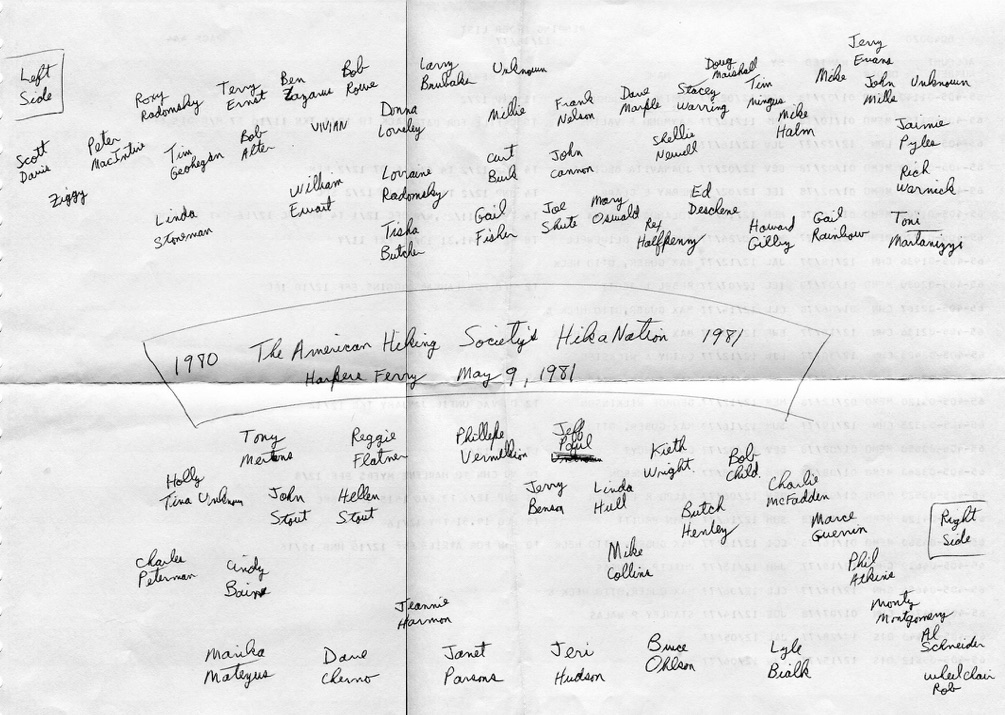 Left
Side
Scott
Davis
Ziggy
Peter
MacIntire
Roxy
Radomsky
Terry
Ernst
Ben
Zazarus
Bob
Rowe
Larry
Brubaker
Unknown
Tim
Geohegan
Bob
Alter
VIVIAN
Donna
Loveley
Millie
Frank
Nelson
Dave
Marple
Stacey
Warring
Doug
Marshall
Tim
Mingus
Mike
Halm
Mike
Jerry
Evans
John
Mills
Unknown
Linda
Stoneman
William
Ewart
Lorraine
Radomsky
Tisha
Butcher
Curt
Burk
Gail
Fisher
John
Cannon
Joe
Shute
Mary
Oswald
Shellie
Newell
Ed
Deschene
Rej
Halfpenny
Howard
Gilley
Gail
Rainbow
Jaimie
Pylee
Rich
Warnick
Toni
1980 The American Hiking Society's HikaNation 1981
Harpers Ferry May 9, 1981
Tony
Mertens
Reggie
Flatner
Phillepe
Vermillion
Jeff
Paul
Kieth
Wright
Bob
Child
Charlie
McFadden
Holly
Tina Unknown
John
Stout
Hellen
Stout
Jerry
Benson
Linda
Hull
Butch
Henley
Marce
Guerin
Right
Side
Charlie
Peterman
Cindy
Bain
Mike
Collins
Phil
Atkins
Jeannie
Harmon
Monty
Montgomery
Al
Schneider
Marika
Mateyus
Dave
Cherno
Janet
Parsons
Jeri
Hudson
Bruce
Ohlson
Lyle
Bialk
Wheelchair
Rob